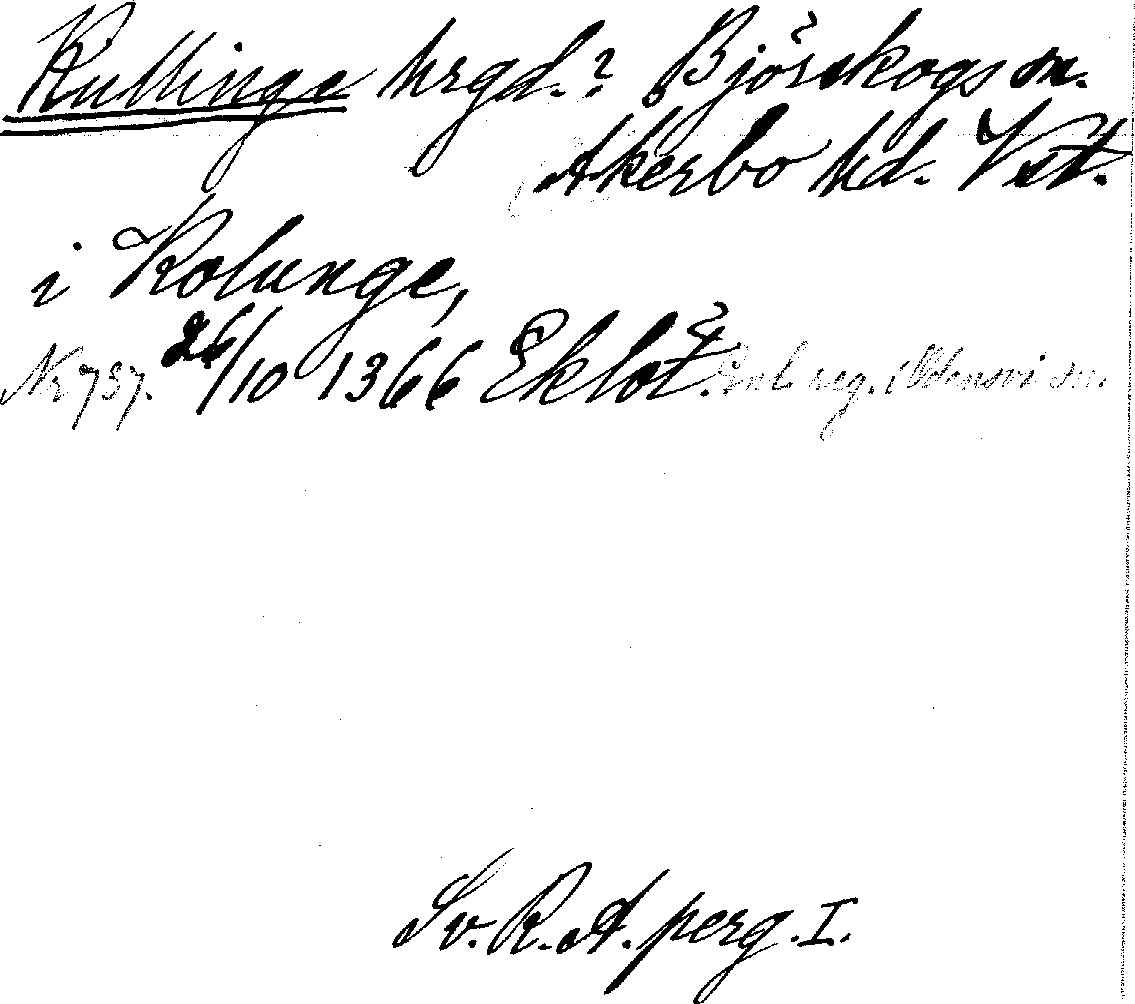 Kullinge hrgd.? Björskogs sn.
Akerbo hd. Vst.
i Kolunge,
Nr 737. 26/10 1366 Eklöt. Enl. reg. i Odensvi sn.
Sv. R. A. perg. I.